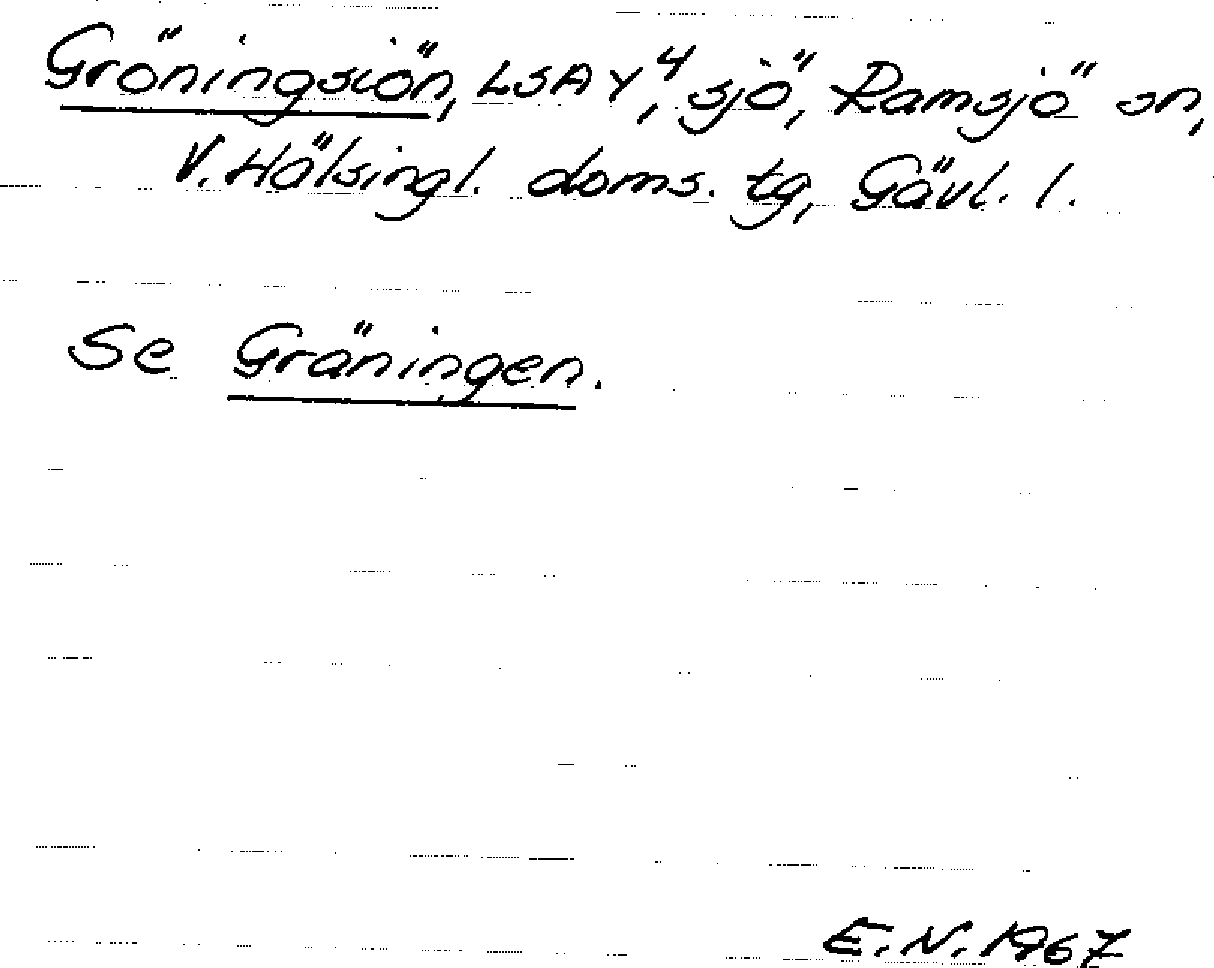 Gröningsiön, LSA Y⁴, sjö, Ramsjö sn,
V. Hälsingl. doms. tg, Gävl. l.
Se Gräningen.
E.N. 1967